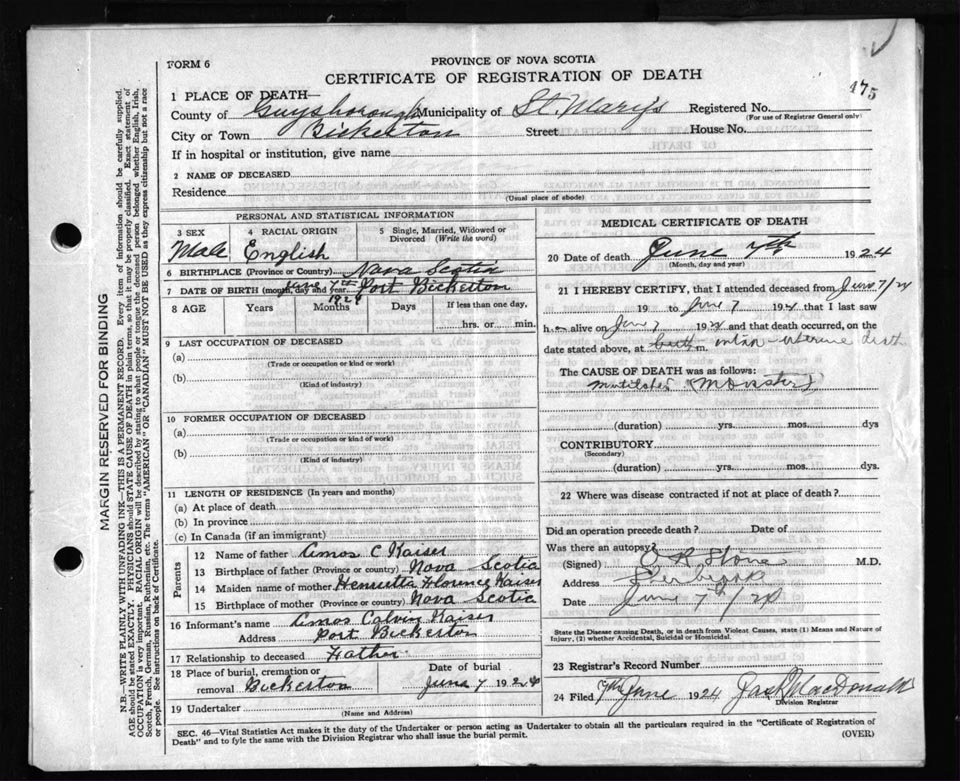 FORM 6
PROVINCE OF NOVA SCOTIA
CERTIFICATE OF REGISTRATION OF DEATH
475
1 PLACE OF DEATH—
County of Guysborough Municipality of St. Mary's Registered No.
(For use of Registrar General only)
City or Town Bickerton Street House No.
If in hospital or institution, give name
2 NAME OF DECEASED
Residence
(Usual place of abode)
PERSONAL AND STATISTICAL INFORMATION
3 SEX 4 RACIAL ORIGIN 5 Single, Married, Widowed or Divorced (Write the word)
Male English
6 BIRTHPLACE (Province or Country) Nova Scotia
7 DATE OF BIRTH (month, day and year) June 7th 1924 Port Bickerton
8 AGE Years Months Days If less than one day,
hrs. or min.
9 LAST OCCUPATION OF DECEASED
(a)
(Trade or occupation or kind or work)
(b)
(Kind of industry)
10 FORMER OCCUPATION OF DECEASED
(a)
(Trade or occupation or kind of work)
(b)
(Kind of industry)
11 LENGTH OF RESIDENCE (In years and months)
(a) At place of death
(b) In province
(c) In Canada (if an immigrant)
Parents
12 Name of father Amos C Kaiser
13 Birthplace of father (Province or country) Nova Scotia
14 Maiden name of mother Henrietta Florence Kaiser
15 Birthplace of mother (Province or country) Nova Scotia
16 Informant's name Amos Calvin Kaiser
Address Port Bickerton
17 Relationship to deceased Father
18 Place of burial, cremation or removal Bickerton Date of burial June 7 1924
19 Undertaker
(Name and Address)
MEDICAL CERTIFICATE OF DEATH
20 Date of death June 7th 1924
(Month, day and year)
21 I HEREBY CERTIFY, that I attended deceased from June 7/24
19 to June 7 1924 that I last saw
h alive on June 7 1924 and that death occurred, on the
date stated above, at birth m. intra-uterine death
The CAUSE OF DEATH was as follows:
(Monster)
(duration) yrs. mos. dys
CONTRIBUTORY
(Secondary)
(duration) yrs. mos. dys.
22 Where was disease contracted if not at place of death?
Did an operation precede death? Date of
Was there an autopsy?
(Signed) M.D.
Address
Date June 7/24
State the Disease causing Death, or in death from Violent Causes, state (1) Means and Nature of
Injury, (2) whether Accidental, Suicidal or Homicidal.
23 Registrar's Record Number
24 Filed 7th June 1924 Jack MacDonald
Division Registrar
SEC. 46—Vital Statistics Act makes it the duty of the Undertaker or person acting as Undertaker to obtain all the particulars required in the "Certificate of Registration of
Death" and to fyle the same with the Division Registrar who shall issue the burial permit.
(OVER)
MARGIN RESERVED FOR BINDING
N.B.—WRITE PLAINLY WITH UNFADING INK—THIS IS A PERMANENT RECORD. Every item of information should be carefully supplied.
AGE should be stated EXACTLY. PHYSICIANS should STATE CAUSE OF DEATH in plain terms, so that it may be properly classified. Exact statement of
OCCUPATION is very important. RACIAL ORIGIN will be described by stating to what people or tongue the deceased person belonged whether English, Irish,
Scotch, French, German, Russian, Ruthenian, etc. The terms "AMERICAN" OR "CANADIAN" MUST NOT BE USED as they express citizenship but not a race
or people. See instructions on back of Certificate.